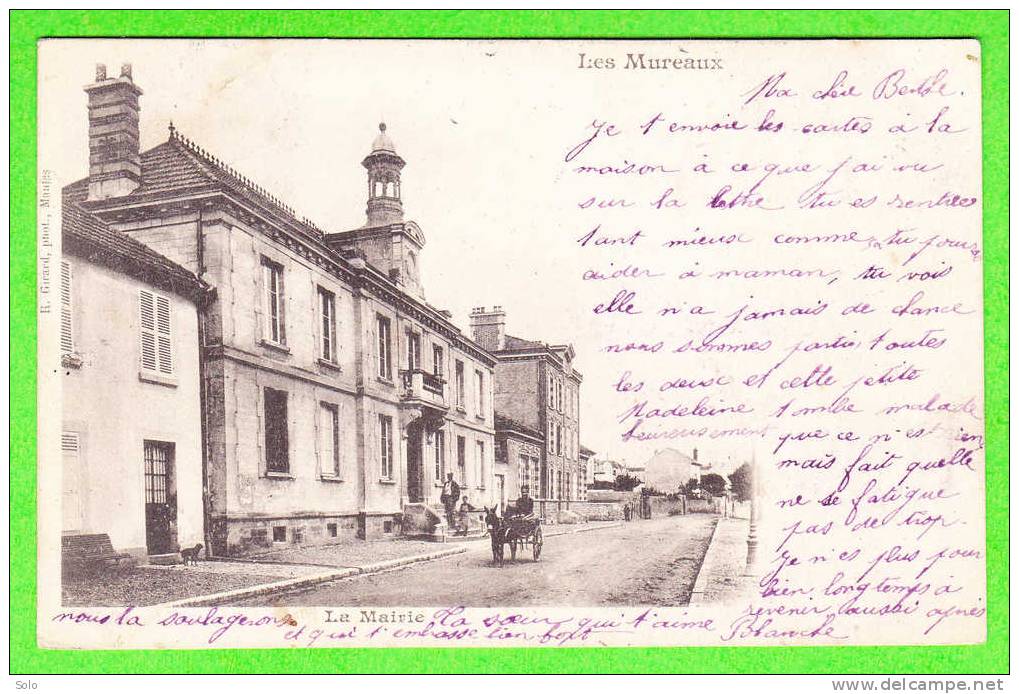 Les Mureaux
R. Girard, phot., Mantes
Ma chère Berthe.
Je t envoie les cartes à la
maison à ce que j'ai vu
sur la lettre tu es rentrée
tant mieux comme tu pourras
aider à maman, tu vois
elle n'a jamais de chance
nous sommes partie toutes
les deux et cette petite
Madeleine tombe malade
heureusement que ce n'est rien
mais fait quelle
ne se fatigue
pas de trop.
Je n'es plus pour
bien longtemps à
revenir, aussi après
nous la soulagerons
La Mairie
Ta sœur qui t'aime
et qui t'embrasse bien fort
Blanche
Solo
www.delcampe.net